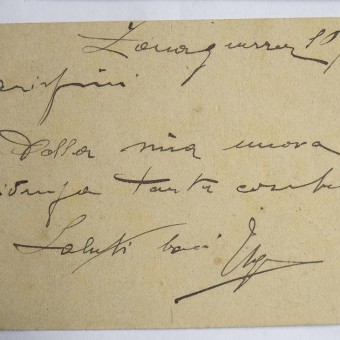 Zona guerra 19
arissimi
Dalla mia nuova
idenza tante cose be
Saluti baci Ugo